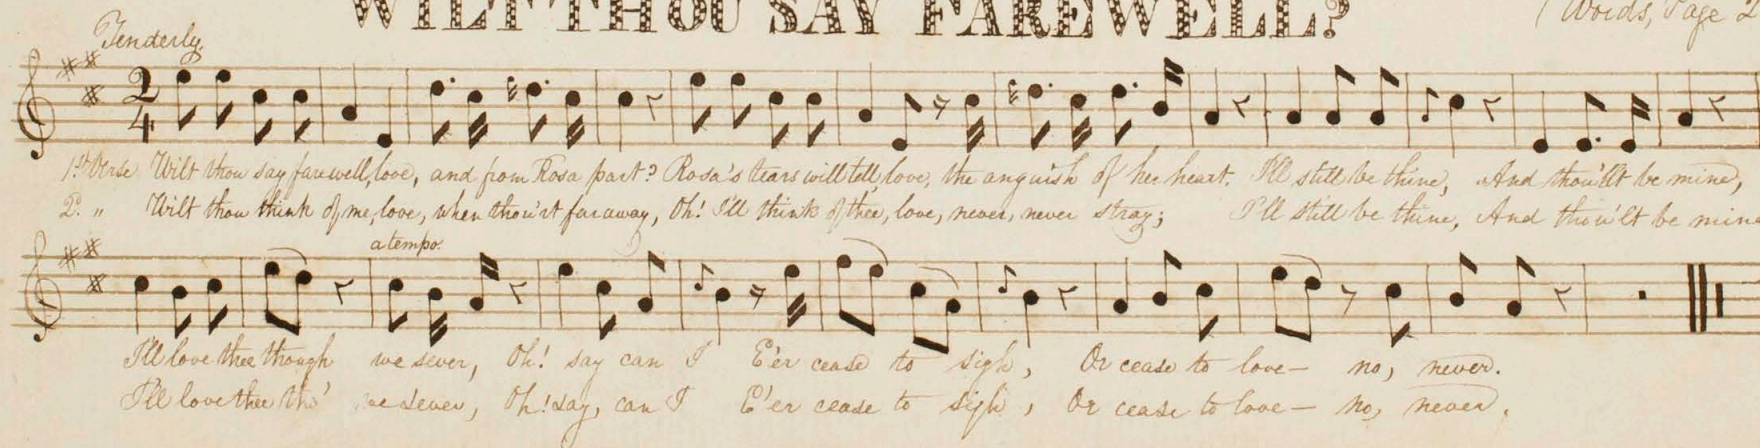 WILT THOU SAY FAREWELL?
(Words, Page 2
Tenderly.
2
4
1st Verse Wilt thou say farewell, love, and from Rosa part? Rosa's tears will tell, love, the anguish of her heart. I'll still be thine, And thou'lt be mine,
2d. " Wilt thou think of me, love, when thou'rt far away, Oh! I'll think of thee, love, never, never stray; I'll still be thine, And thou'lt be mine
a tempo.
I'll love thee though we sever, Oh! say can I E'er cease to sigh, Or cease to love— no, never.
I'll love thee tho' we sever, Oh! say, can I E'er cease to sigh, Or cease to love— no, never.